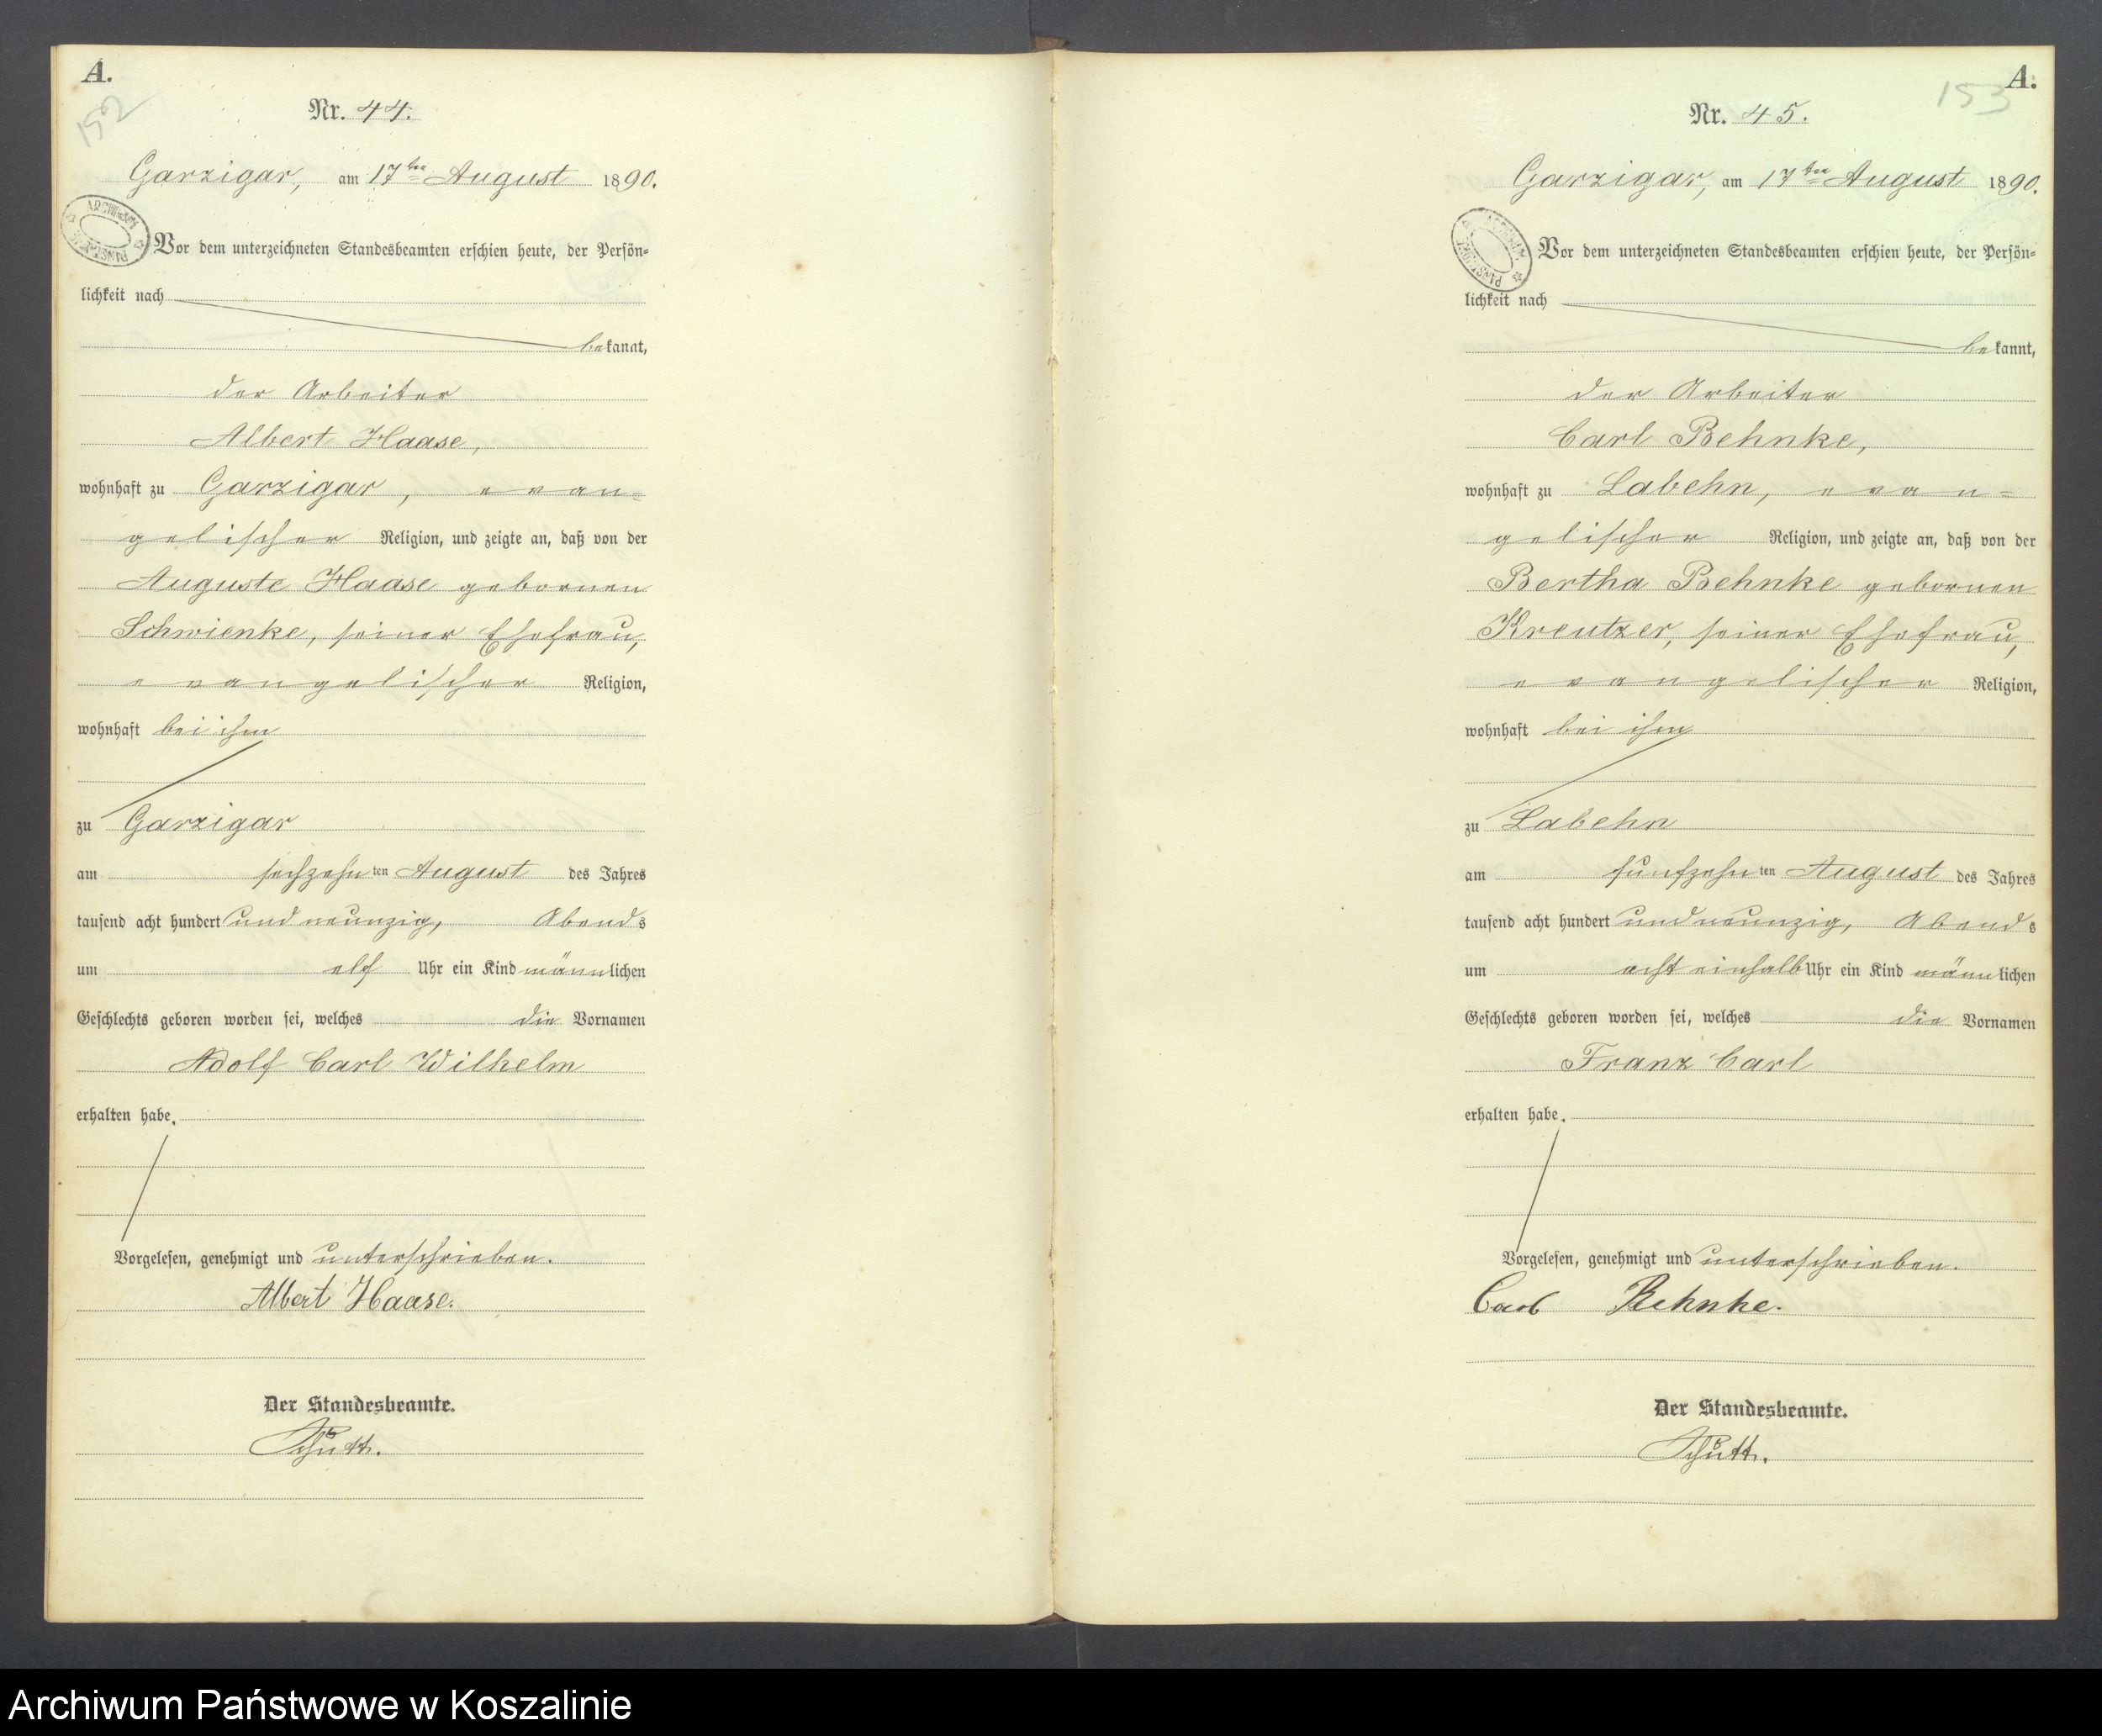 A.
152
Nr. 44.
Garzigar, am 17ten August 1890.
ARCHIWUM PAŃSTWOWE
Vor dem unterzeichneten Standesbeamten erschien heute, der Persön-
lichkeit nach
bekannt,
der Arbeiter
Albert Haase,
wohnhaft zu Garzigar, evan=
gelischer Religion, und zeigte an, daß von der
Auguste Haase gebornen
Schwienke, seiner Ehefrau,
evangelischer Religion,
wohnhaft bei ihm
zu Garzigar
am sechzehnten August des Jahres
tausend acht hundert und neunzig, Abends
um elf Uhr ein Kind männlichen
Geschlechts geboren worden sei, welches die Vornamen
Adolf Carl Wilhelm
erhalten habe.
Vorgelesen, genehmigt und unterschrieben.
Albert Haase.
Der Standesbeamte.
Schütt.
A.
153
Nr. 45.
Garzigar, am 17ten August 1890.
ARCHIWUM PAŃSTWOWE
Vor dem unterzeichneten Standesbeamten erschien heute, der Persön-
lichkeit nach
bekannt,
der Arbeiter
Carl Behnke,
wohnhaft zu Labehn, evan=
gelischer Religion, und zeigte an, daß von der
Bertha Behnke gebornen
Kreutzer, seiner Ehefrau,
evangelischer Religion,
wohnhaft bei ihm
zu Labehn
am funfzehnten August des Jahres
tausend acht hundert und neunzig, Abends
um acht einhalb Uhr ein Kind männlichen
Geschlechts geboren worden sei, welches die Vornamen
Franz Carl
erhalten habe.
Vorgelesen, genehmigt und unterschrieben.
Carl Behnke.
Der Standesbeamte.
Schütt.
Archiwum Państwowe w Koszalinie